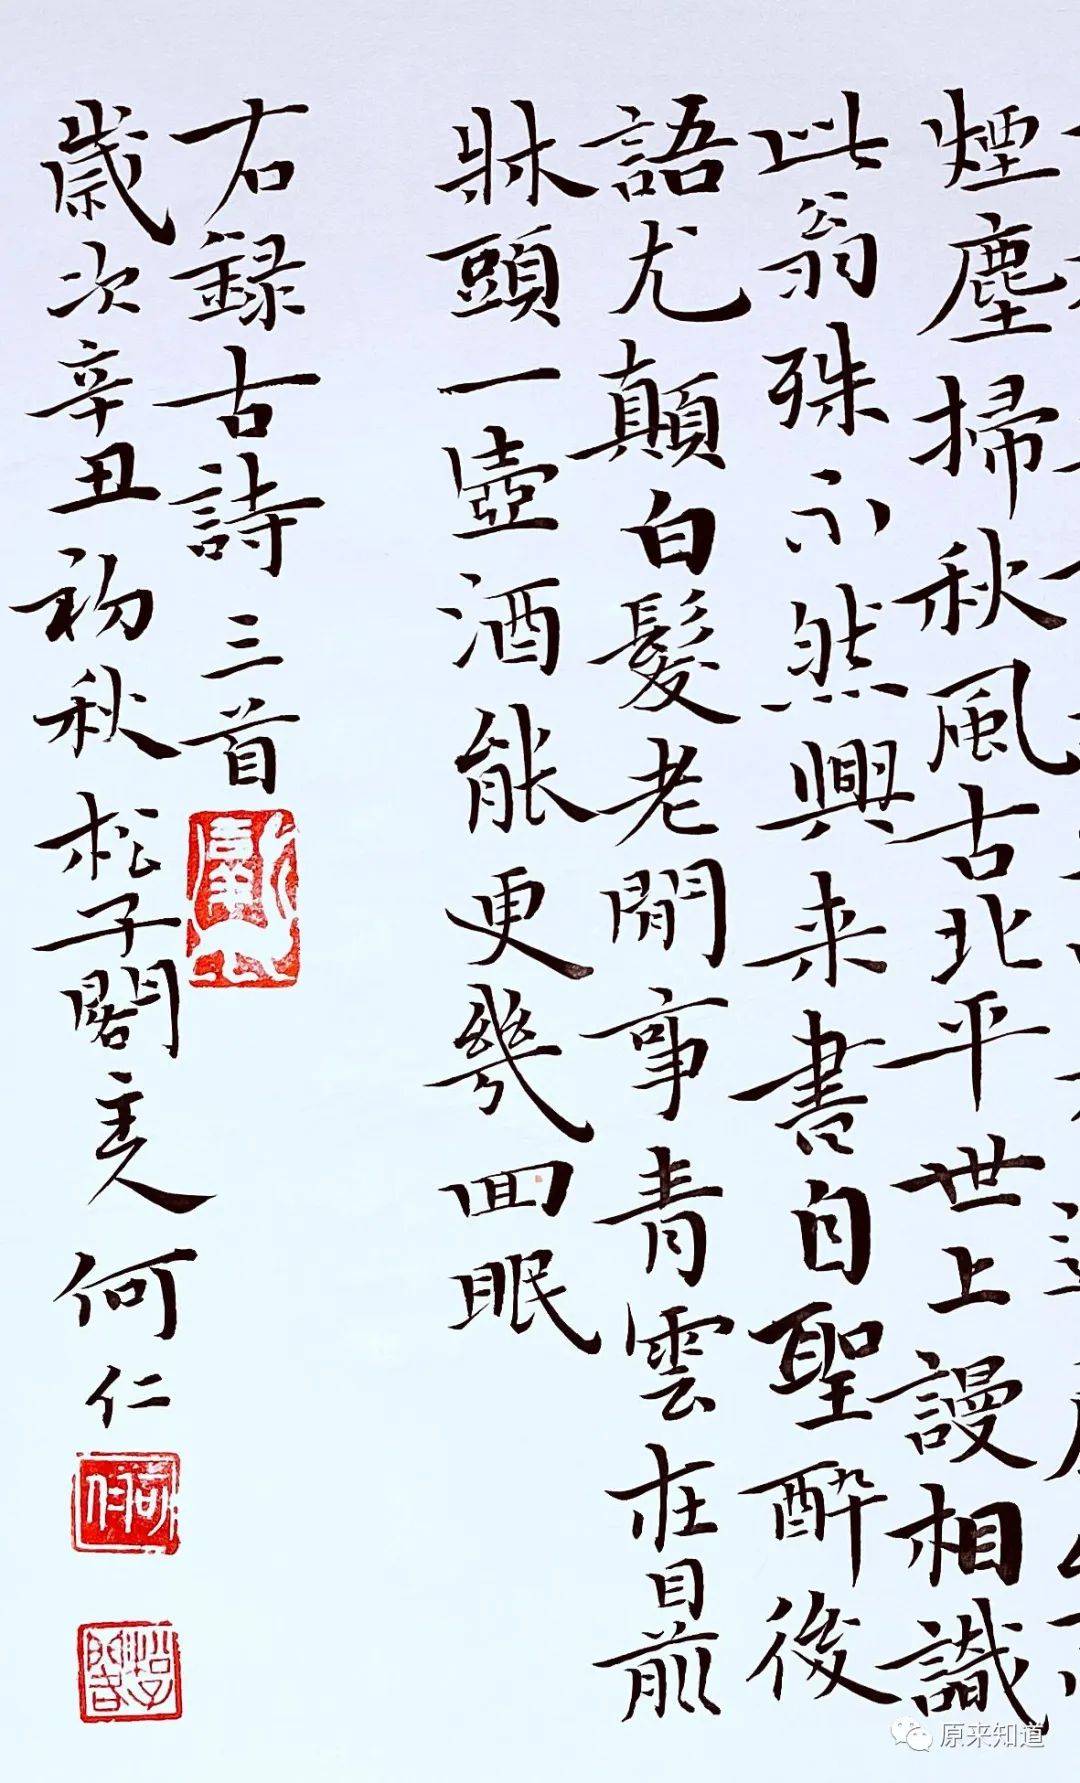 煙塵掃秋風古北平世上謾相識
此翁殊不然興来書自聖醉後
語尤顛白髮老閒事青雲在目前
牀頭一壺酒能更幾回眠
右録古詩三首
歲次辛丑初秋松子閣主人何仁
何仁
松子閣
原来知道